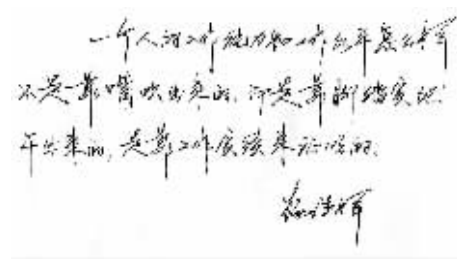 一个人的工作能力和工作水平怎么样
不是靠嘴吹出来的，而是靠脚踏实地
干出来的，是靠工作成绩来证明的。